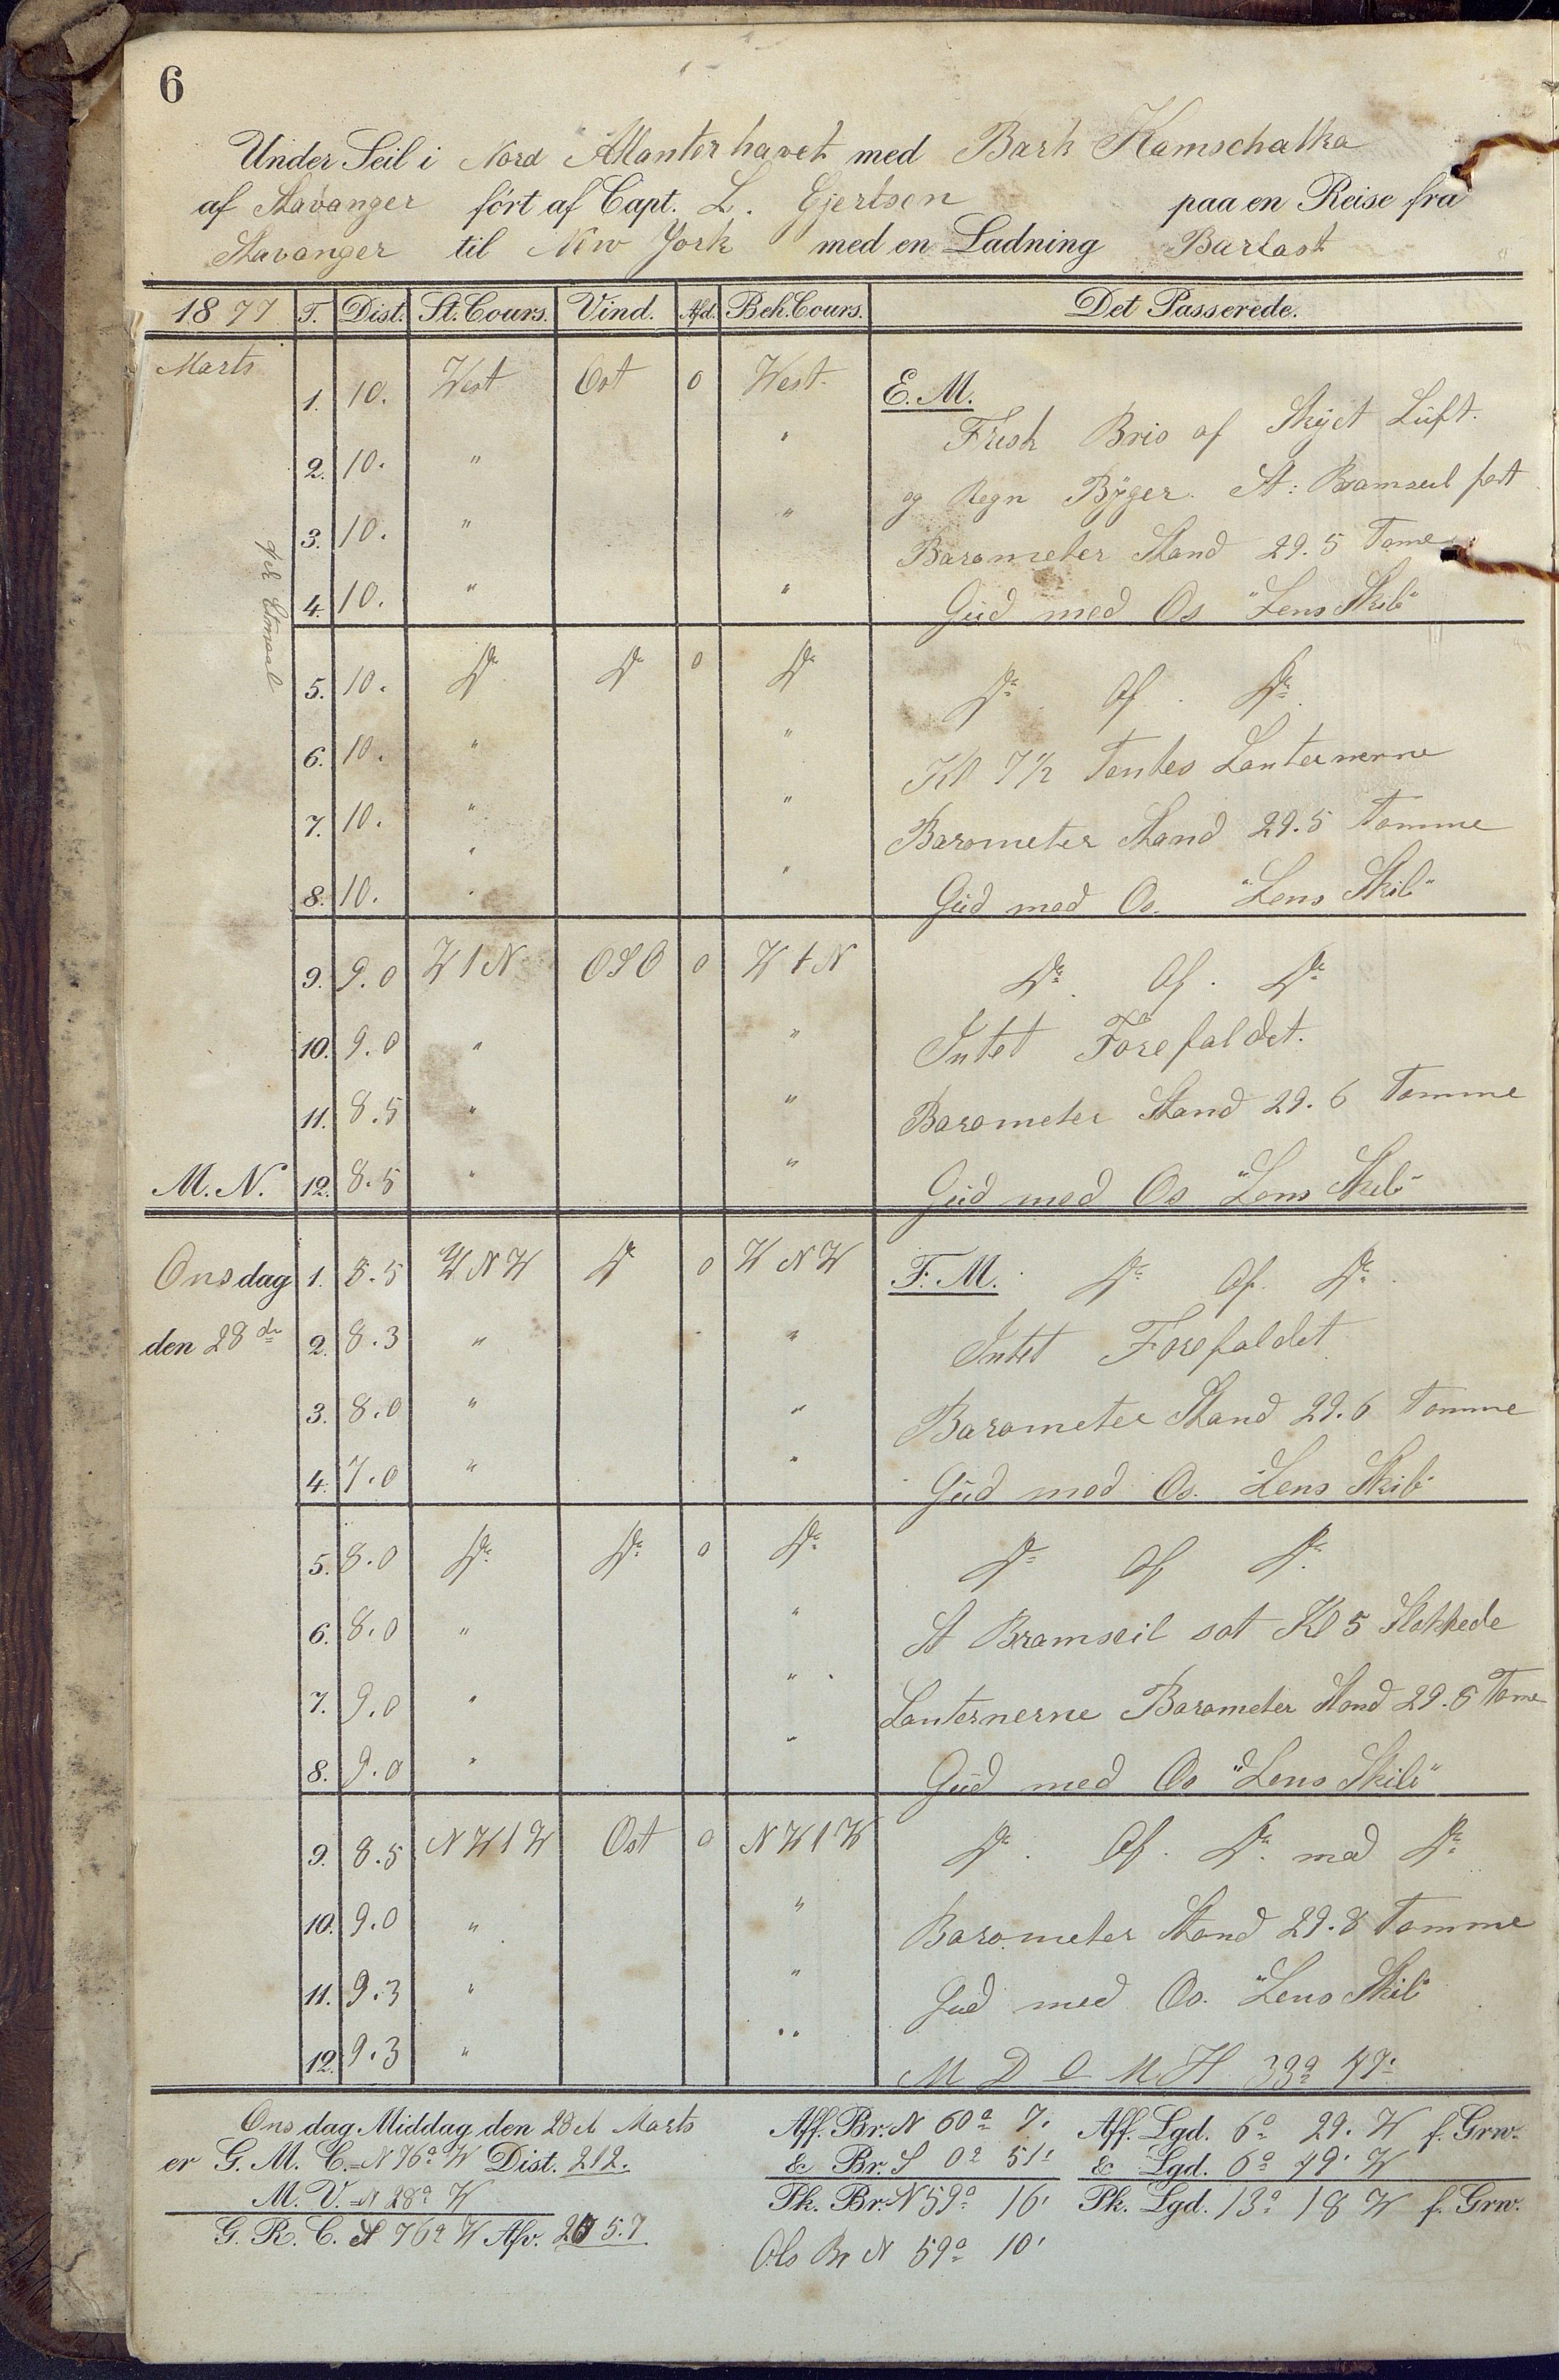 6
Under Seil i Nord Atlanterhavet med Bark Kamschatka
af Stavanger ført af Capt. L. Gjertsen paa en Reise fra
Stavanger til New York med en Ladning Barlast
1877 T. Dist. St. Cours. Vind. Afd. Beh. Cours. Det Passerede.
Marts 1. 10. West Ost 0 West E. M.
Frisk Bris af Skyet Lüft.
2. 10. " "
og Regn Byger. St: Bramseil fast
3. 10. " "
Barometer Stand 29.5 Tome
4. 10. " "
Güd med Os "Lens Skib"
Etmaal
5. 10. Do Do 0 Do Do Af. Do
6. 10. " "
Kl 7½ Tentes Lanternerne
7. 10. " "
Barometer Stand 29.5 Tomme
8. 10. " "
Güd med Os. "Lens Skib"
9. 9.0 W1N OSO 0 W1N Do Af. Do
10. 9.0 " " Intet Forefaldet.
11. 8.5 " " Barometer Stand 29.6 Tomme
M. N. 12. 8.5 " " Güd med Os "Lens Skib"
Onsdag 1. 8.5 WNW Do 0 WNW F. M. Do Af. Do
den 28de 2. 8.3 " " Intet Forefaldet
3. 8.0 " " Barometer Stand 29.6 Tomme
4. 7.0 " " Güd med Os. "Lens Skib"
5. 8.0 Do Do 0 Do Do Af Do
6. 8.0 " " St Bramseil sat Kl 5 Slokkede
7. 9.0 " " Lanternerne Barometer Stand 29.6 Tome
8. 9.0 " " Güd med Os "Lens Skib"
9. 8.5 NW1W Ost 0 NW1W Do. Af. Do. med Do
10. 9.0 " " Barometer Stand 29.8 Tomme
11. 9.3 " " Güd med Os. "Lens Skib"
12. 9.3 " " M D O M H 33°
Onsdag Middag den 28de Marts Aff. Br. N 60° 7' Aff. Lgd. 6° 29' W f. Grw.
er G. M. C. N 76° W Dist. 212. & Br. S 0° 51' & Lgd. 6° 49' W
M. V. N 28° W Pk. Br. N 59° 16' Pk. Lgd. 13° 18 W f. Grw.
G. R. C. S 76° W Afv. 205.7
Obs Br N 59° 10'